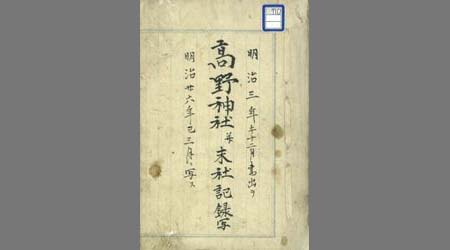 明治三年午十二月書出
高野神社并末社記録写
明治廿六年巳三月写ス